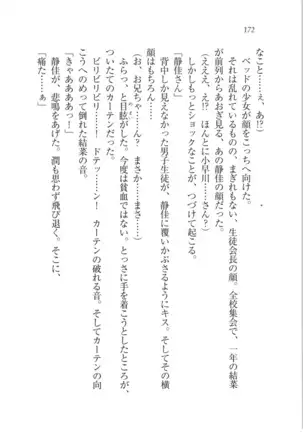 172
なこと……ぇ、あ!?
ベッドの少女が顔をこっちへ向けた。
それは乱れているものの、まぎれもない、生徒会長の顔。全校集会で、一年の結菜
が前列からあおぎ見る、あの静佳の顔だった。
(えええ、え!? ほんとに小早川……さん?)
しかしもっとショックなことが、つづけて起こる。
「静佳さん」
背中しか見えなかった男子生徒が、静佳に覆いかぶさるようにキス。そしてその横
顔はもちろん……。
(お、お兄ちゃん? まさか……まさか……)
ふらっ、と目眩がした。今度は貧血ではない。とっさに手を着こうとしたところが、
ついたてのカーテンだった。
ビリビリビリー! ドテッ……ン! カーテンの破れる音。そしてカーテンの向
こうへのめって倒れた結菜の音。
「きゃああああっ!」
静佳が、悲鳴をあげた。潤も思わず飛び退く。そこに、
「痛た……ぁ」